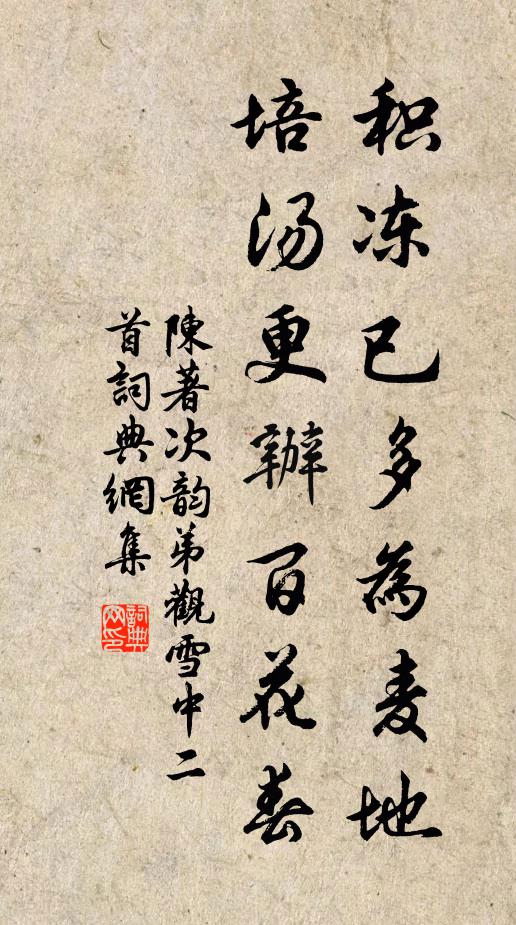 积冻已多为麦地
培汤更辦百花春
陳著次韵弟觀雪中二
首詞典網集
詞典網印